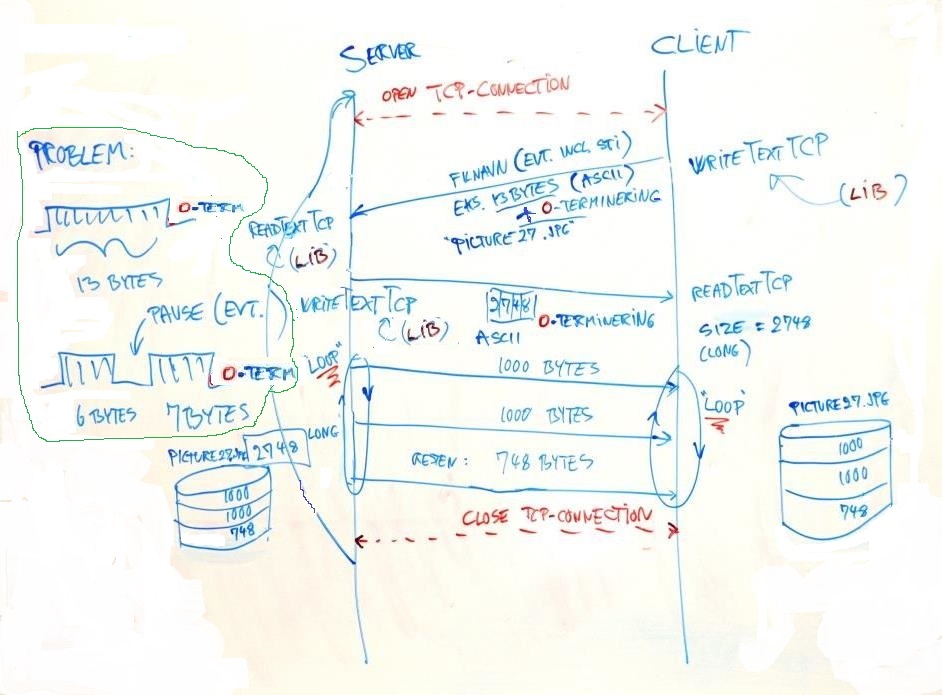 SERVER
CLIENT
OPEN TCP-CONNECTION
PROBLEM:
0-TERM
13 BYTES
PAUSE (EVT.
0-TERM
6 BYTES 7 BYTES
FILNAVN (EVT. INCL. STI)
EKS. 13 BYTES (ASCII)
+ 0-TERMINERING
"PICTURE27.JPG"
WRITETEXTTCP
(LIB)
READTEXTTCP
(LIB)
WRITETEXTTCP
(LIB)
2748
0-TERMINERING
ASCII
READTEXTTCP
SIZE = 2748
(LONG)
"LOOP"
1000 BYTES
1000 BYTES
RESTEN: 748 BYTES
"LOOP"
CLOSE TCP-CONNECTION
2748 LONG
1000
1000
748
PICTURE27.JPG
1000
1000
748